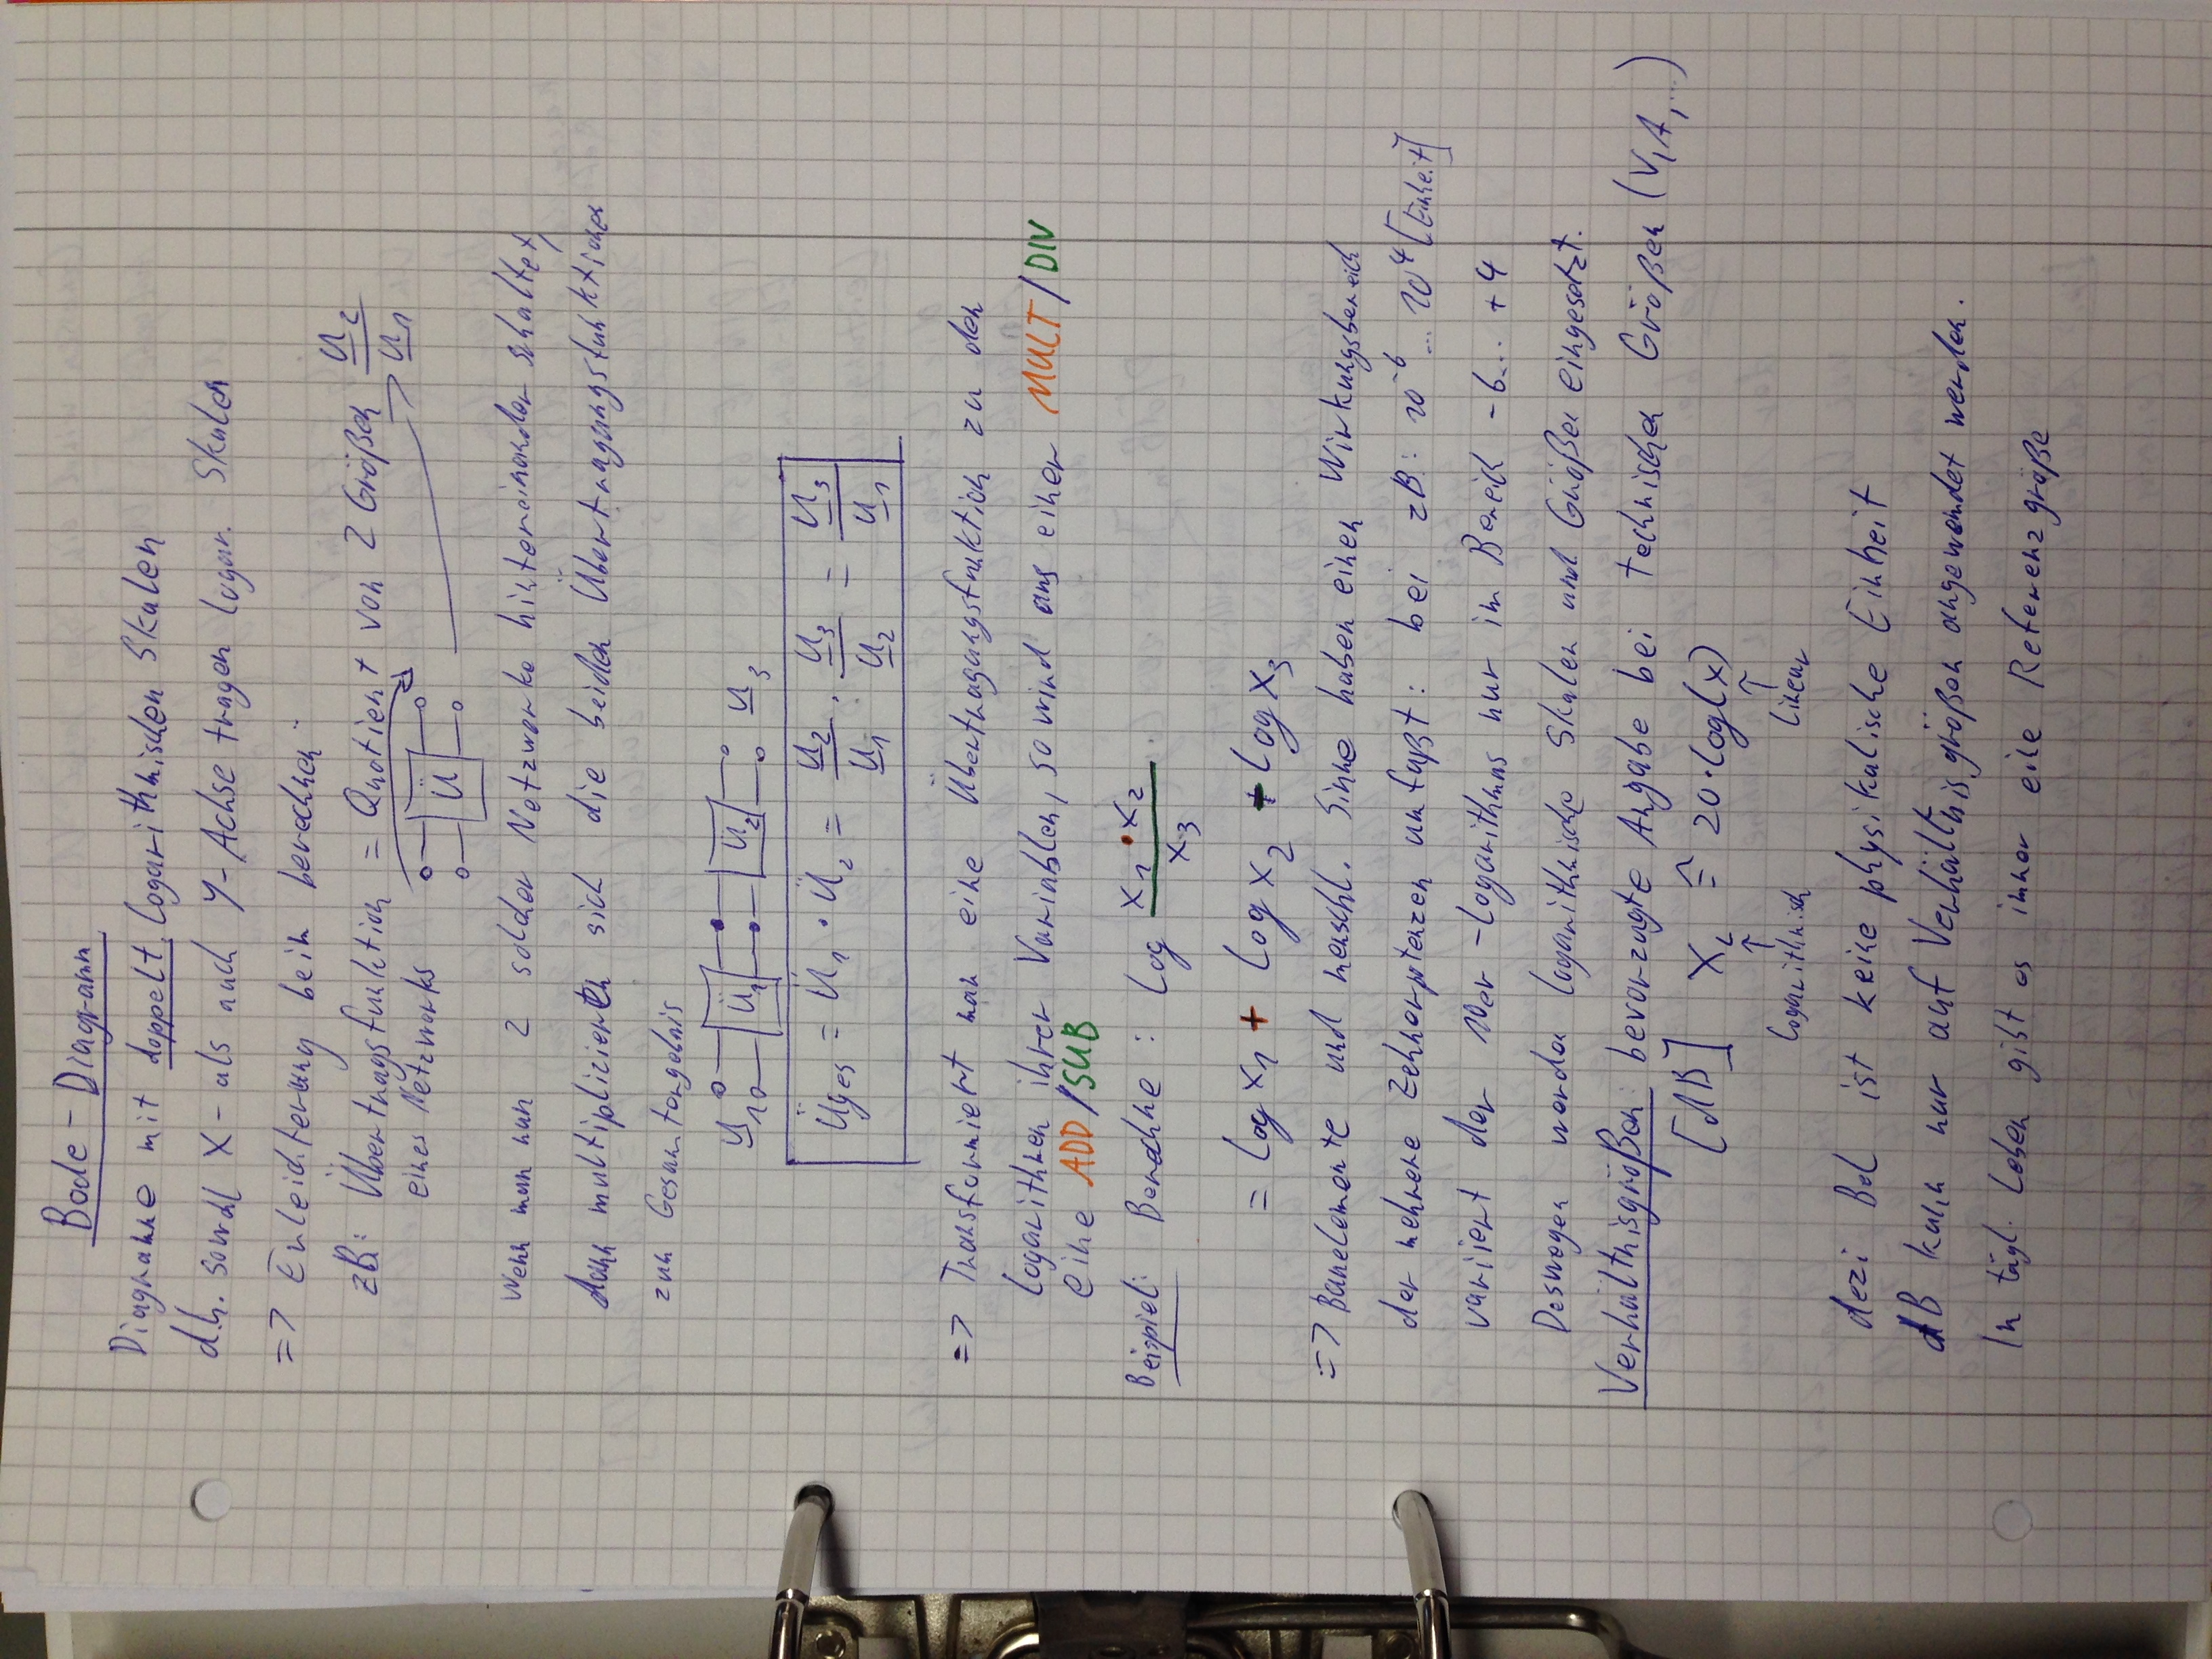 Bode - Diagramm
Diagramme mit doppelt logarithmischen Skalen
d.h. sowohl X- als auch Y-Achse tragen logar. Skalen
=> Erleichterung beim berechnen
zB: Übertragsfunktion = Quotient von 2 Größen U2/U1
eines Netzwerks
Ü
Wenn man nun 2 solcher Netzwerke hintereinander schaltet,
dann multiplizieren sich die beiden Übertragungsfunktionen
zum Gesamtergebnis
U1 Ü1 Ü2 U3
Üges = Ü1 · Ü2 = U2/U1 · U3/U2 = U3/U1
=> Transformiert man eine Übertragungsfunktion zu den
Logarithmen ihrer Variablen, so wird aus einer MULT/DIV
eine ADD/SUB
Beispiel: Berechne: log x1·x2/x3
= log x1 + log x2 - log x3
=> Bauelemente und menschl. Sinne haben einen Wirkungsbereich
der mehrere Zehnerpotenzen umfaßt: bei zB: 10^-6 ... 10^4 [Einheit]
variiert der 10er-Logarithmus nur im Bereich -6... +4
Deswegen werden logarithmische Skalen und Größen eingesetzt.
Verhältnisgrößen: bevorzugte Angabe bei technischen Größen (V, A, ...)
[dB] XL ≙ 20·log(x)
↑ ↑
logarithmisch linear
dezi Bel ist keine physikalische Einheit
dB kann nur auf Verhältnisgrößen angewendet werden.
In tägl. Leben gibt es immer eine Referenzgröße